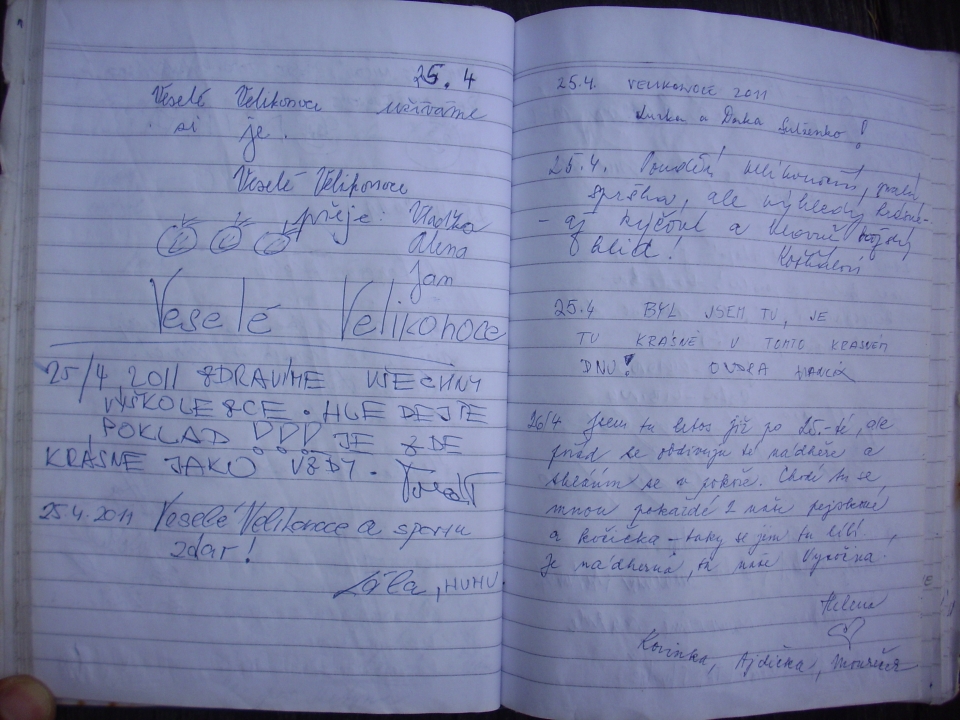 25.4
Veselé Velikonoce užíváme
si je.
Veselé Velikonoce
přeje: Vlaďka
Alena
Jan
Veselé Velikonoce
25/4 2011 ZDRAVIME VŠECHNY
HLEDEJTE
POKLAD !!! JE ZDE
KRÁSNĚ JAKO VŽDY.
25.4.2011 Veselé Velikonoce a sportu
zdar!
Láďa, HUHU.
25.4. VELIKONOCE 2011
Lurka a Darka
25.4. Pondělí velikonoční, malá
sprška, ale výhledy krásné
- aj kýčové a hlavně
klid!
25.4 BYL JSEM TU, JE
TU KRÁSNĚ V TOMTO KRASNEM
DNU! ONDRA
26/4 Jsem tu letos již po 25.-té, ale
pořád se obdivuju té nádheře a
se v pokoře. Chodí tu se
mnou pokaždé 2 naše
a kočička - taky se jim tu líbí.
Je nádherná, ta naše Vysočina.
Helena
Korinka, Ajdička,